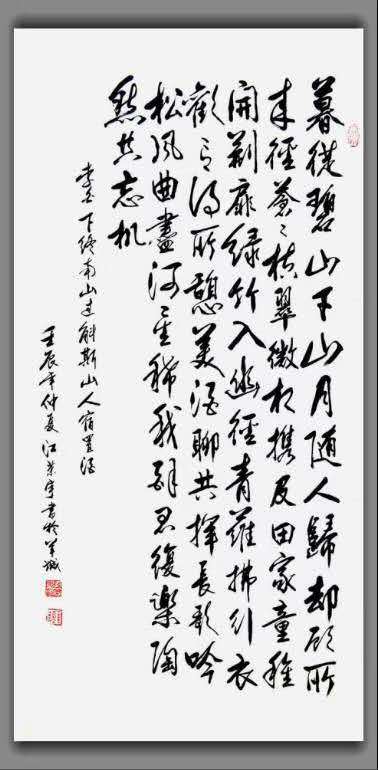 暮從碧山下山月随人歸却顧所
来徑蒼〻横翠微相携及田家童稚
開荆扉緑竹入幽徑青蘿拂行衣
歡言得所憩美酒聊共揮長歌吟
松风曲盡河星稀我醉君復樂陶
然共忘机
李白下终南山过斛斯山人宿置酒
壬辰年仲夏江宇書於羊城